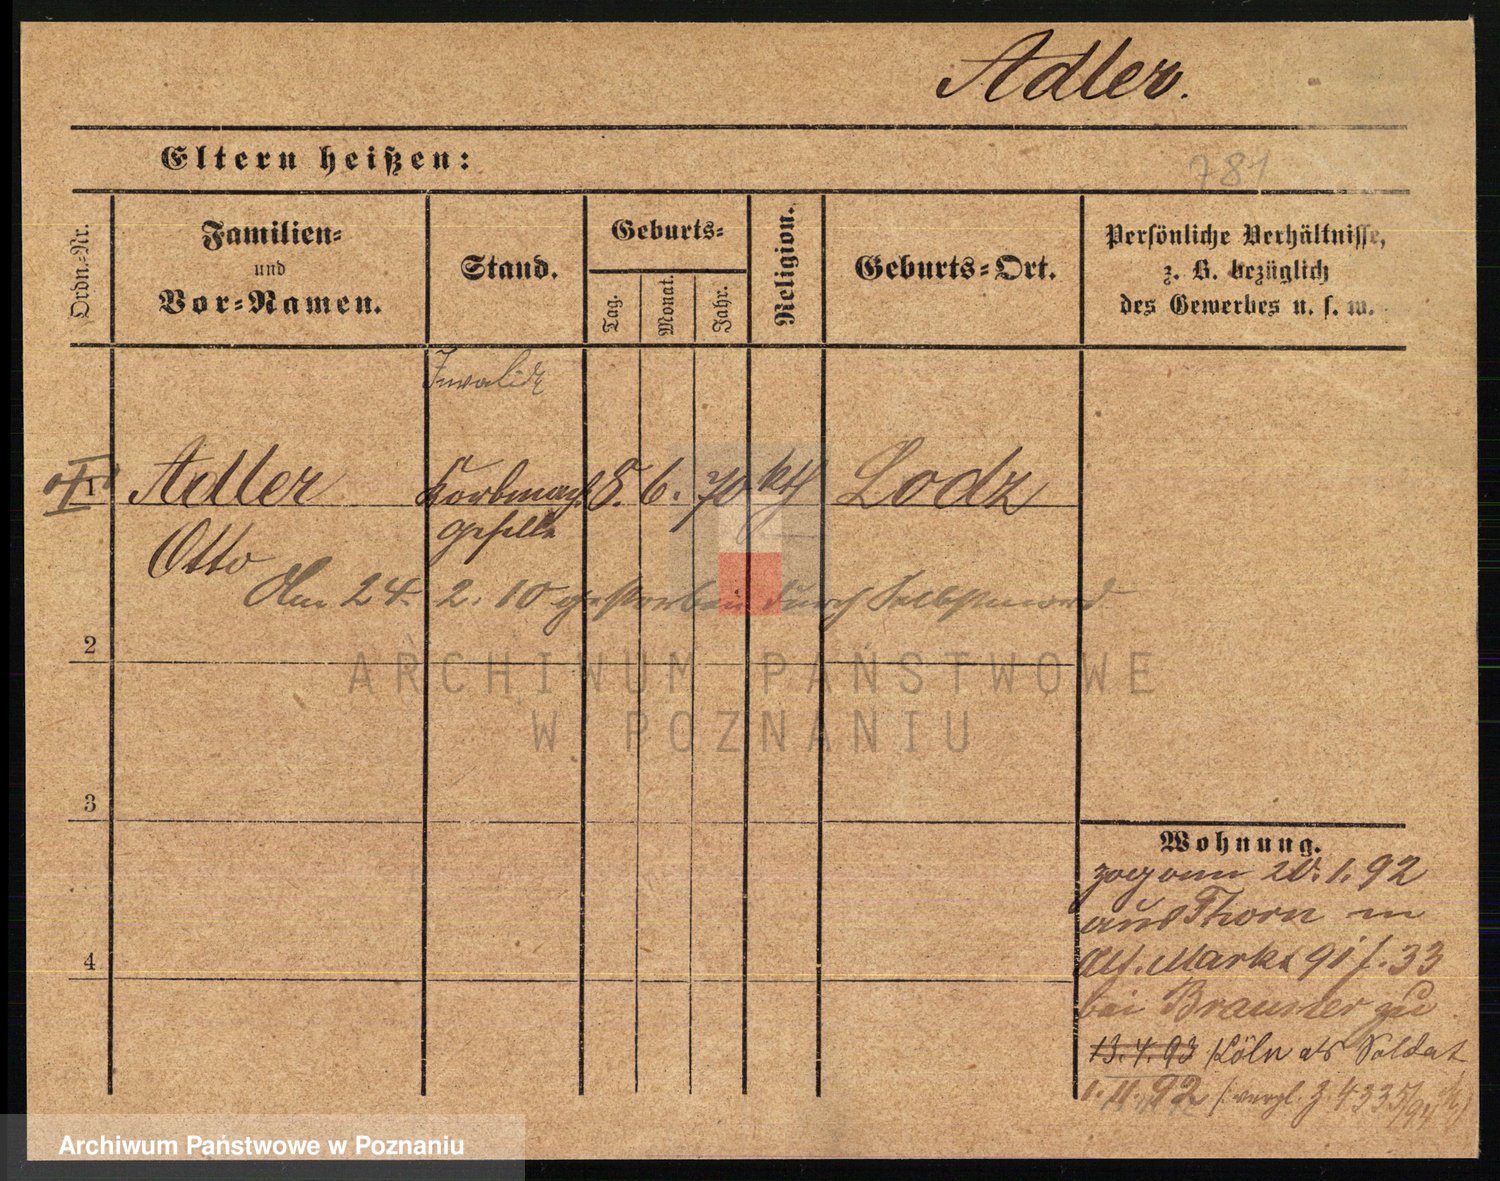 Adler.
Eltern heißen:
781
Ordn.-Nr.
Familien-
und
Vor-Namen.
Stand.
Geburts-
Tag.
Monat.
Jahr.
Religion.
Geburts-Ort.
Persönliche Verhältnisse,
z. B. bezüglich
des Gewerbes u. s. w.
Invalide
1 Adler Korbmach. 5. 6. 70. kth Lodz
Otto geselle
Am 24. 2. 10 gestorben durch Selbstmord
2
ARCHIWUM PAŃSTWOWE
W POZNANIU
3
Wohnung.
zog am 20. 1. 92
aus Thorn in
Alt. Markt 91 f. 33
4
bei Brauner zu
13.4.93 Köln als Soldat
1. 11. 92 (vergl. 3. 4335/94
Archiwum Państwowe w Poznaniu